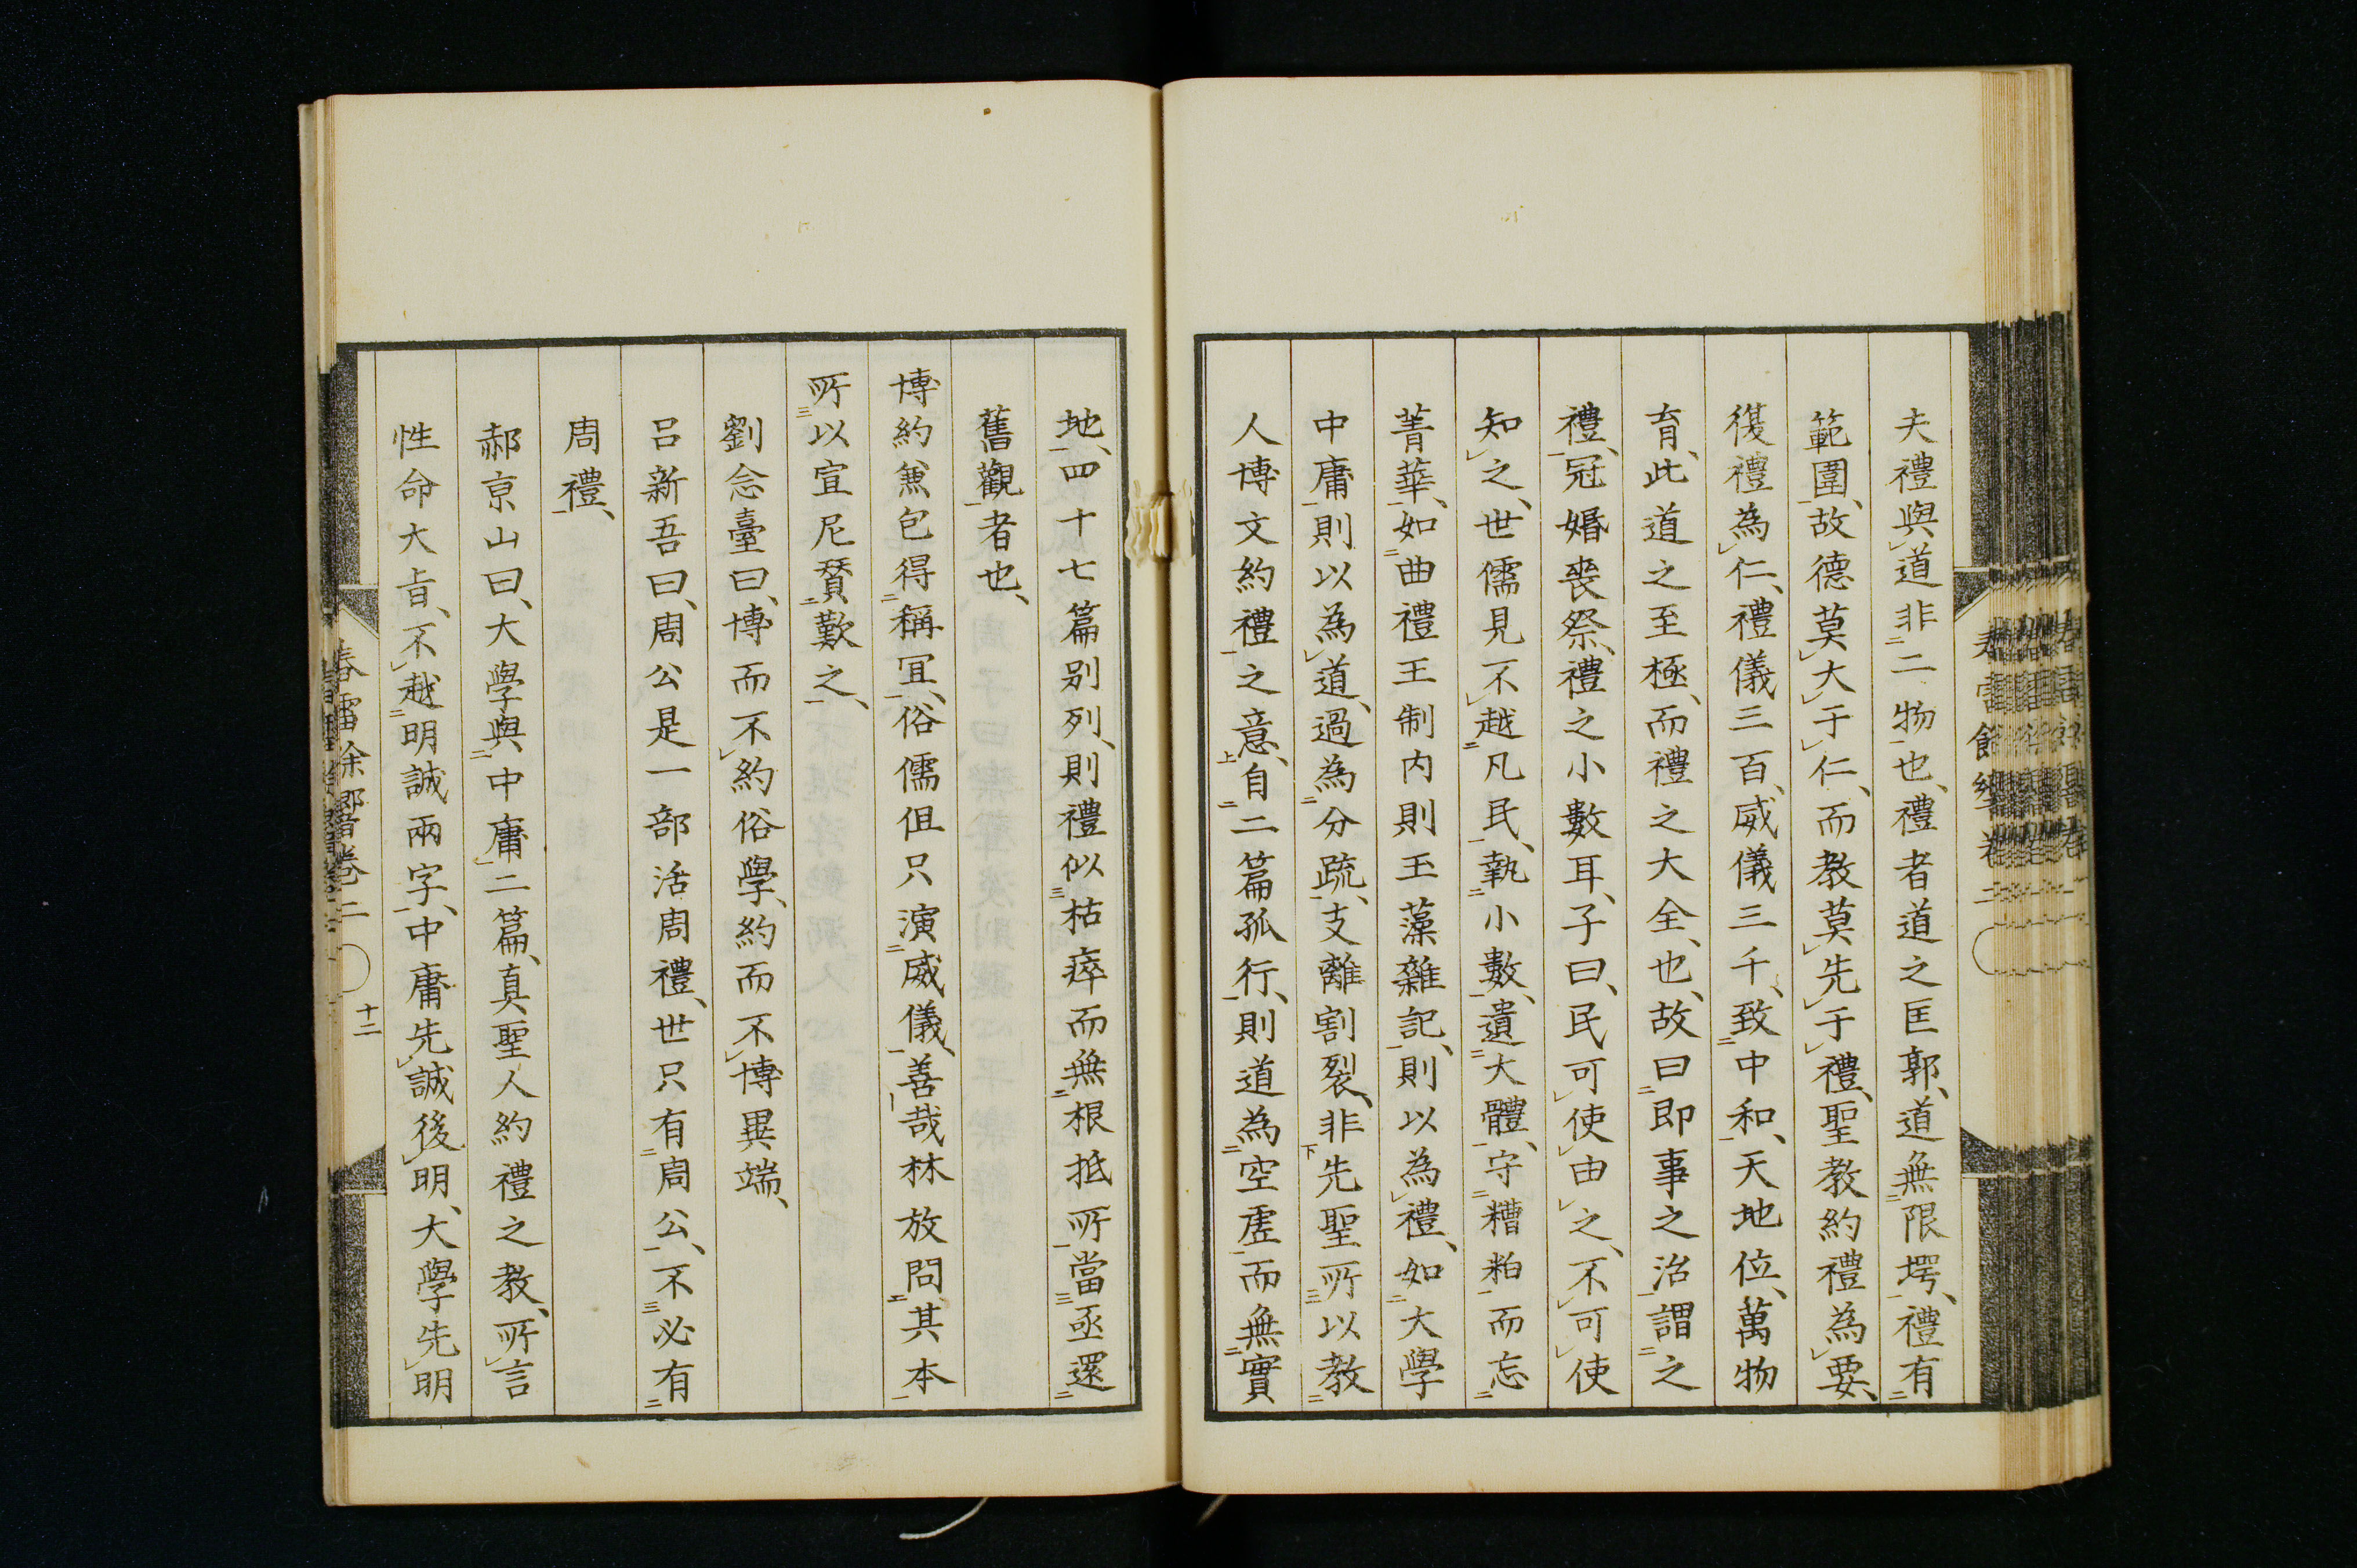 夫禮與道非二物也、禮者道之匡郭、道無限堮、禮有
範圍、故德莫大于仁、而教莫先于禮、聖教約禮為要、
復禮為仁、禮儀三百、威儀三千、致中和、天地位、萬物
育、此道之至極、而禮之大全也、故曰即事之治謂之
禮、冠婚喪祭、禮之小數耳、子曰、民可使由之、不可使
知之、世儒見不越凡民、執小數、遺大體、守糟粕而忘
菁華、如曲禮王制内則玉藻雜記、則以為禮、如大學
中庸則以為道、過為分疏、支離割裂、非先聖所以教
人博文約禮之意、自二篇孤行、則道為空虛而無實
地、四十七篇别列、則禮似枯瘁而無根抵所當亟還
舊觀者也、
博約兼包得稱冝、俗儒但只演威儀、善哉林放問其本
所以宣尼賛歎之、
劉念臺曰、博而不約俗學、約而不博異端、
呂新吾曰、周公是一部活周禮、世只有周公、不必有
周禮、
郝京山曰、大學與中庸二篇、真聖人約禮之教、所言
性命大㫖、不越明誠兩字、中庸先誠後明、大學先明
春雷餘響卷二
十二